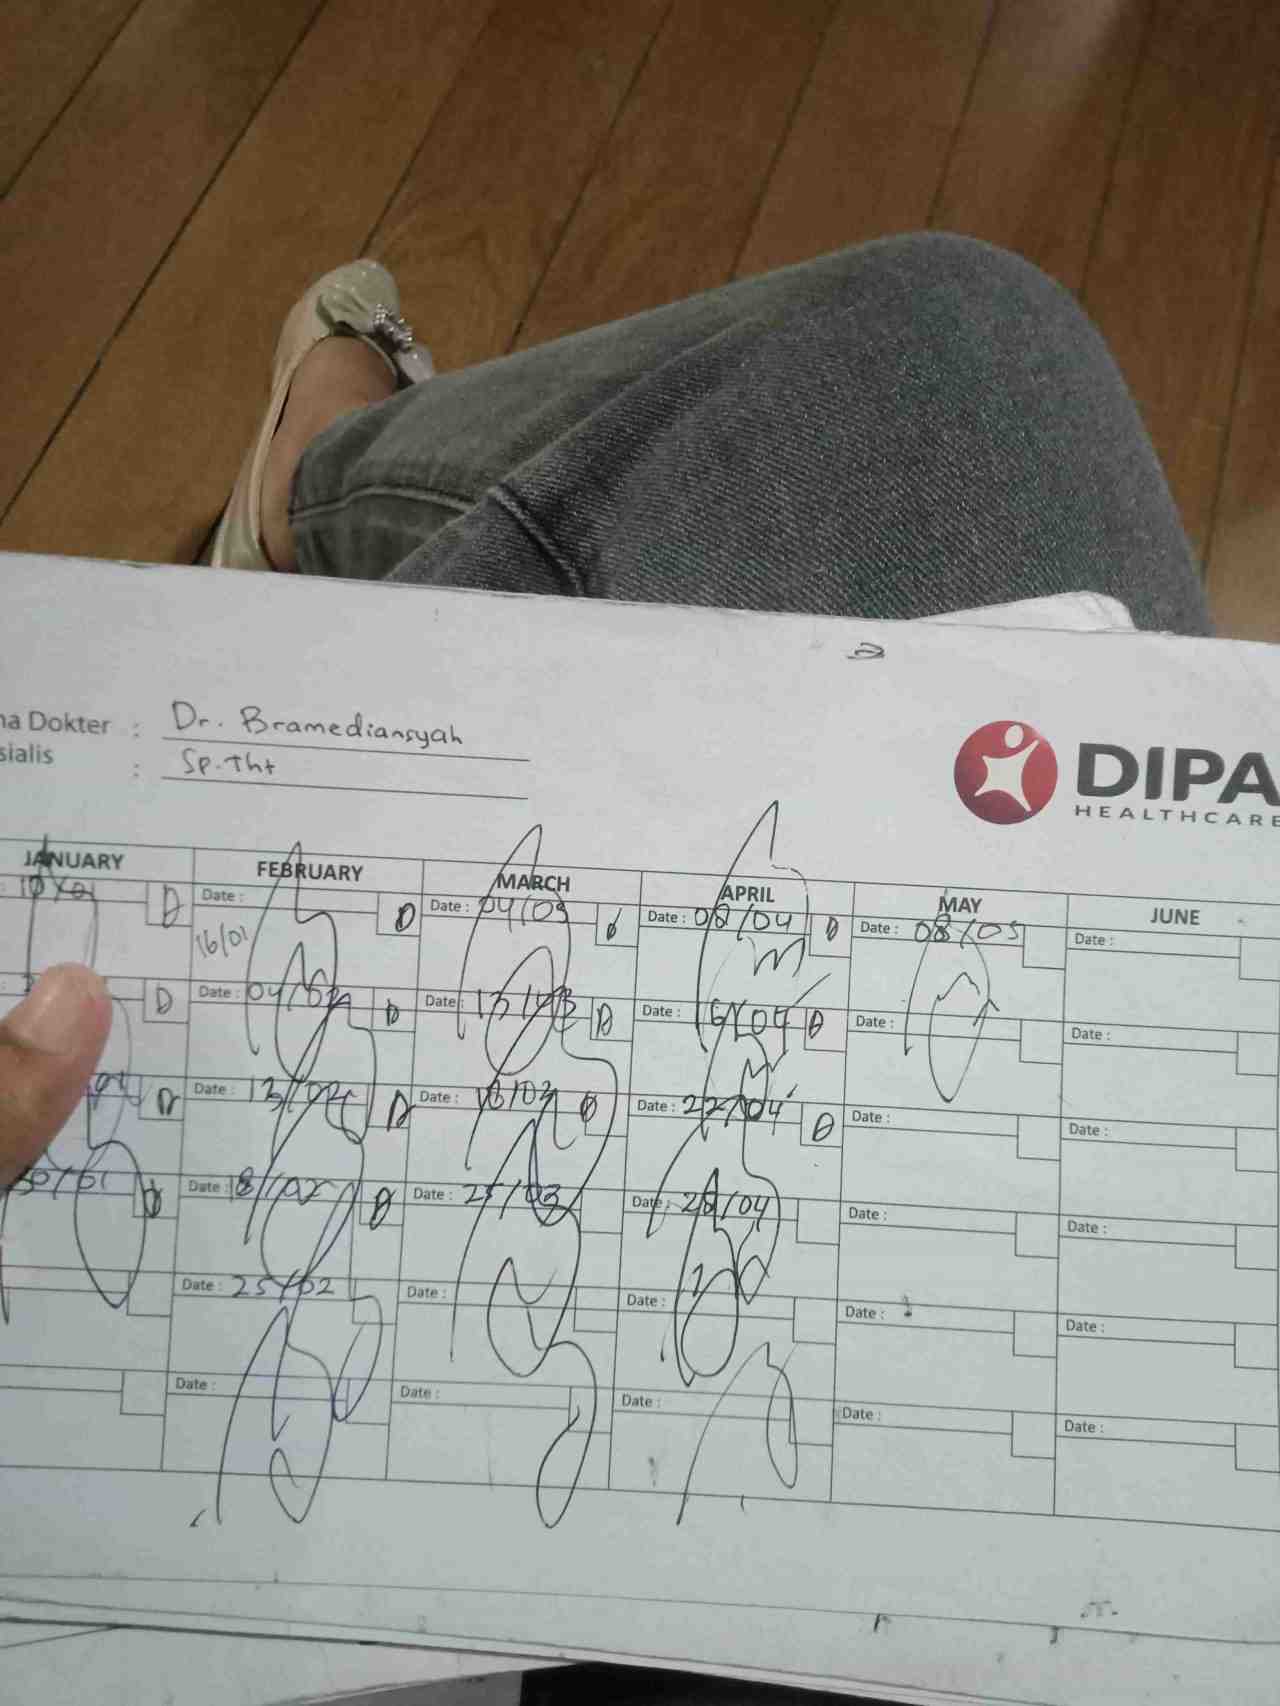 na Dokter : Dr. Bramediansyah
sialis : Sp.Tht
DIPA
HEALTHCARE
JANUARY FEBRUARY MARCH APRIL MAY JUNE
10/01 D Date : D Date : 04/03 D Date : 08/04 D Date : 08/05 Date :
16/01
D Date : 04/02 D Date : 13/03 D Date : 15/04 D Date : Date :
D Date : 13/02 D Date : 18/03 D Date : 22/04 D Date : Date :
30/01 D Date : 18/02 D Date : 25/03 Date : 28/04 Date : Date :
Date : 25/02 Date : Date : Date : Date :
Date : Date : Date : Date : Date :